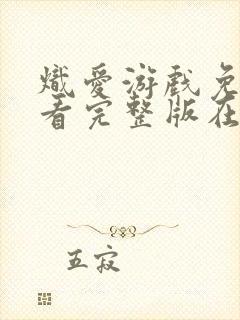 熾愛游戲免
看完整版在
五寂